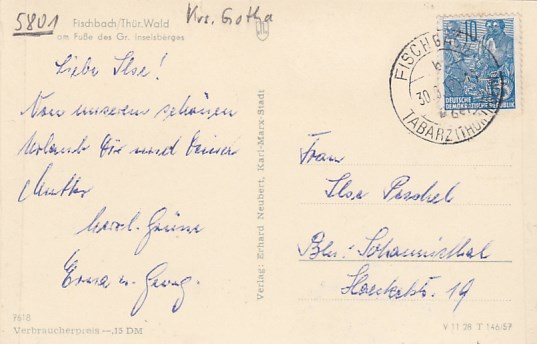 5801
Krs. Gotha
Fischbach/Thür. Wald
am Fuße des Gr. Inselsberges
Liebe Ilse!
Von unserem schönen
Urlaub Dir und Deiner
Mutter
herzl. Grüße
Erna u. Georg.
7618
Verbraucherpreis -,15 DM
Verlag: Erhard Neubert, Karl-Marx-Stadt
10
DEUTSCHE
DEMOKRATISCHE REPUBLIK
30.
TABARZ(THÜR
Frau
Ilse Peschel
Bln.-Johannisthal
Str. 19
V 11 28 T 146/57